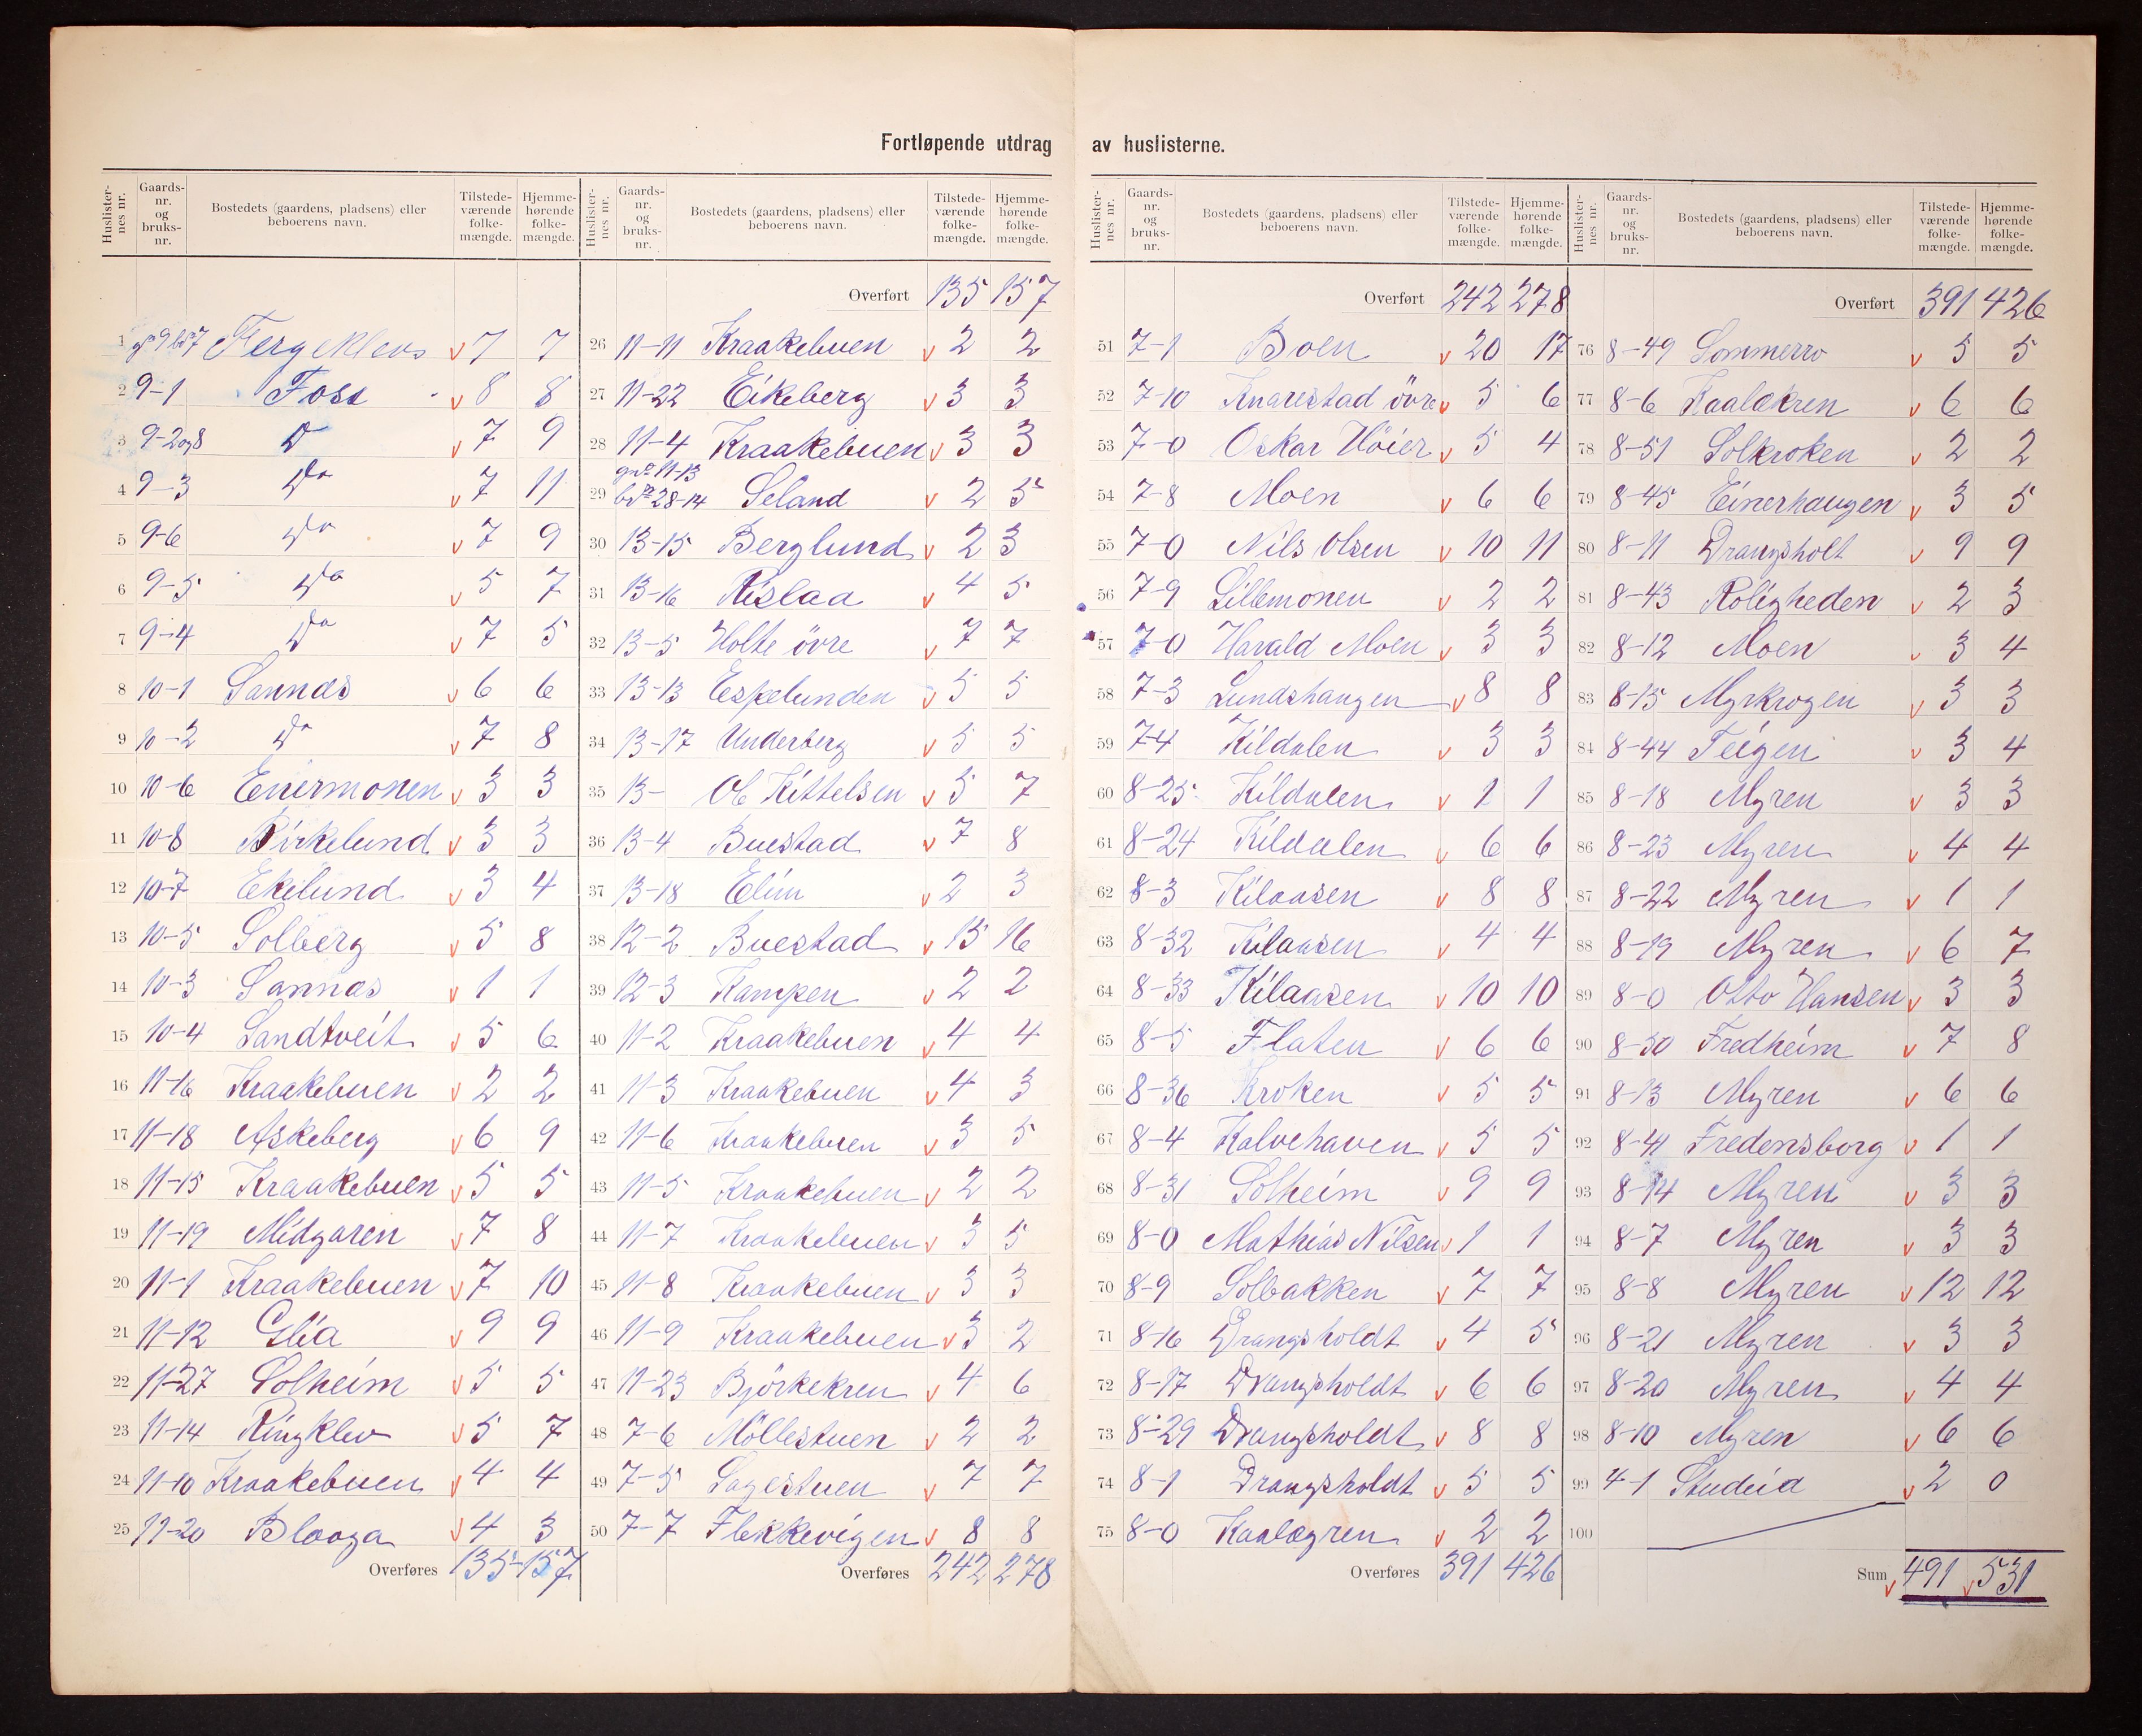 Fortløpende utdrag av huslisterne.
Huslister-nes nr. Gaards-nr. og bruks-nr. Bostedets (gaardens, pladsens) eller beboerens navn. Tilstede-værende folke-mængde. Hjemme-hørende folke-mængde.
1 gno 9 bno 7 Fergeklevs v 7 7
2 9-1 Foss v 8 8
3 9-2 og 8 Do v 7 9
4 9-3 Do v 7 11
5 9-6 Do v 7 9
6 9-5 Do v 5 7
7 9-4 Do v 7 5
8 10-1 Sannas v 6 6
9 10-2 Do v 7 8
10 10-6 Enermonen v 3 3
11 10-8 Birkelund v 3 3
12 10-7 Ekelund v 3 4
13 10-5 Solberg v 5 8
14 10-3 Sannas v 1 1
15 10-4 Sandtveit v 5 6
16 11-16 Kraakebuen v 2 2
17 11-18 Askeberg v 6 9
18 11-15 Kraakebuen v 5 5
19 11-19 Midgaren v 7 8
20 11-1 Kraakebuen v 7 10
21 11-12 Glia v 9 9
22 11-27 Solheim v 5 5
23 11-14 Ringklev v 5 7
24 11-10 Kraakebuen v 4 4
25 11-20 Blooga v 4 3
Overføres 135 157
Huslister-nes nr. Gaards-nr. og bruks-nr. Bostedets (gaardens, pladsens) eller beboerens navn. Tilstede-værende folke-mængde. Hjemme-hørende folke-mængde.
Overført 135 157
26 11-11 Kraakebuen v 2 2
27 11-22 Eikeberg v 3 3
28 11-4 Kraakebuen v 3 3
29 gno 11-13 bno 28-14 Seland v 2 5
30 13-15 Berglund v 2 3
31 13-16 Rislaa v 4 5
32 13-5 Holte övre v 7 7
33 13-13 Espelunden v 5 5
34 13-17 Underberg v 5 5
35 13- Ole Kittelsen v 5 7
36 13-4 Buestad v 7 8
37 13-18 Elim v 2 3
38 12-2 Buestad v 15 16
39 12-3 Kampen v 2 2
40 11-2 Kraakebuen v 4 4
41 11-3 Kraakebuen v 4 3
42 11-6 Kraakebuen v 3 5
43 11-5 Kraakebuen v 2 2
44 11-7 Kraakebuen v 3 5
45 11-8 Kraakebuen v 3 3
46 11-9 Kraakebuen v 3 2
47 11-23 Björkekren v 4 6
48 7-6 Möllestuen v 2 2
49 7-5 Sagestuen v 7 7
50 7-7 Flekkevigen v 8 8
Overføres 242 278
Huslister-nes nr. Gaards-nr. og bruks-nr. Bostedets (gaardens, pladsens) eller beboerens navn. Tilstede-værende folke-mængde. Hjemme-hørende folke-mængde.
Overført 242 278
51 7-1 Boen v 20 17
52 7-10 Knarestad övre v 5 6
53 7-0 Oskar Höier v 5 4
54 7-8 Moen v 6 6
55 7-0 Nils Olsen v 10 11
56 7-9 Lillemonen v 2 2
57 7-0 Harald Moen v 3 3
58 7-3 Lundshaugen v 8 8
59 7-4 Kildalen v 3 3
60 8-25 Kildalen v 1 1
61 8-24 Kildalen v 6 6
62 8-3 Kilaasen v 8 8
63 8-32 Kilaasen v 4 4
64 8-33 Kilaasen v 10 10
65 8-5 Flaten v 6 6
66 8-36 Kroken v 5 5
67 8-4 Kalvehaven v 5 5
68 8-31 Solheim v 9 9
69 8-0 Mathias Nilsen v 1 1
70 8-9 Solbakken v 7 7
71 8-16 Drangsholdt v 4 5
72 8-17 Drangsholdt v 6 6
73 8-29 Drangsholdt v 8 8
74 8-1 Drangsholdt v 5 5
75 8-0 Kaalægren v 2 2
Overføres 391 426
Huslister-nes nr. Gaards-nr. og bruks-nr. Bostedets (gaardens, pladsens) eller beboerens navn. Tilstede-værende folke-mængde. Hjemme-hørende folke-mængde.
Overført 391 426
76 8-49 Sommerro v 5 5
77 8-6 Kaalækren v 6 6
78 8-51 Solkroken v 2 2
79 8-45 Einerhaugen v 3 5
80 8-11 Drangsholt v 9 9
81 8-43 Roligheden v 2 3
82 8-12 Moen v 3 4
83 8-15 Myrkrogen v 3 3
84 8-44 Teigen v 3 4
85 8-18 Myren v 3 3
86 8-23 Myren v 4 4
87 8-22 Myren v 1 1
88 8-19 Myren v 6 7
89 8-0 Otto Hansen v 3 3
90 8-50 Fredheim v 7 8
91 8-13 Myren v 6 6
92 8-41 Fredensborg v 1 1
93 8-14 Myren v 3 3
94 8-7 Myren v 3 3
95 8-8 Myren v 12 12
96 8-21 Myren v 3 3
97 8-20 Myren v 4 4
98 8-10 Myren v 6 6
99 4-1 Studeia v 2 0
100
Sum v 491 v 531